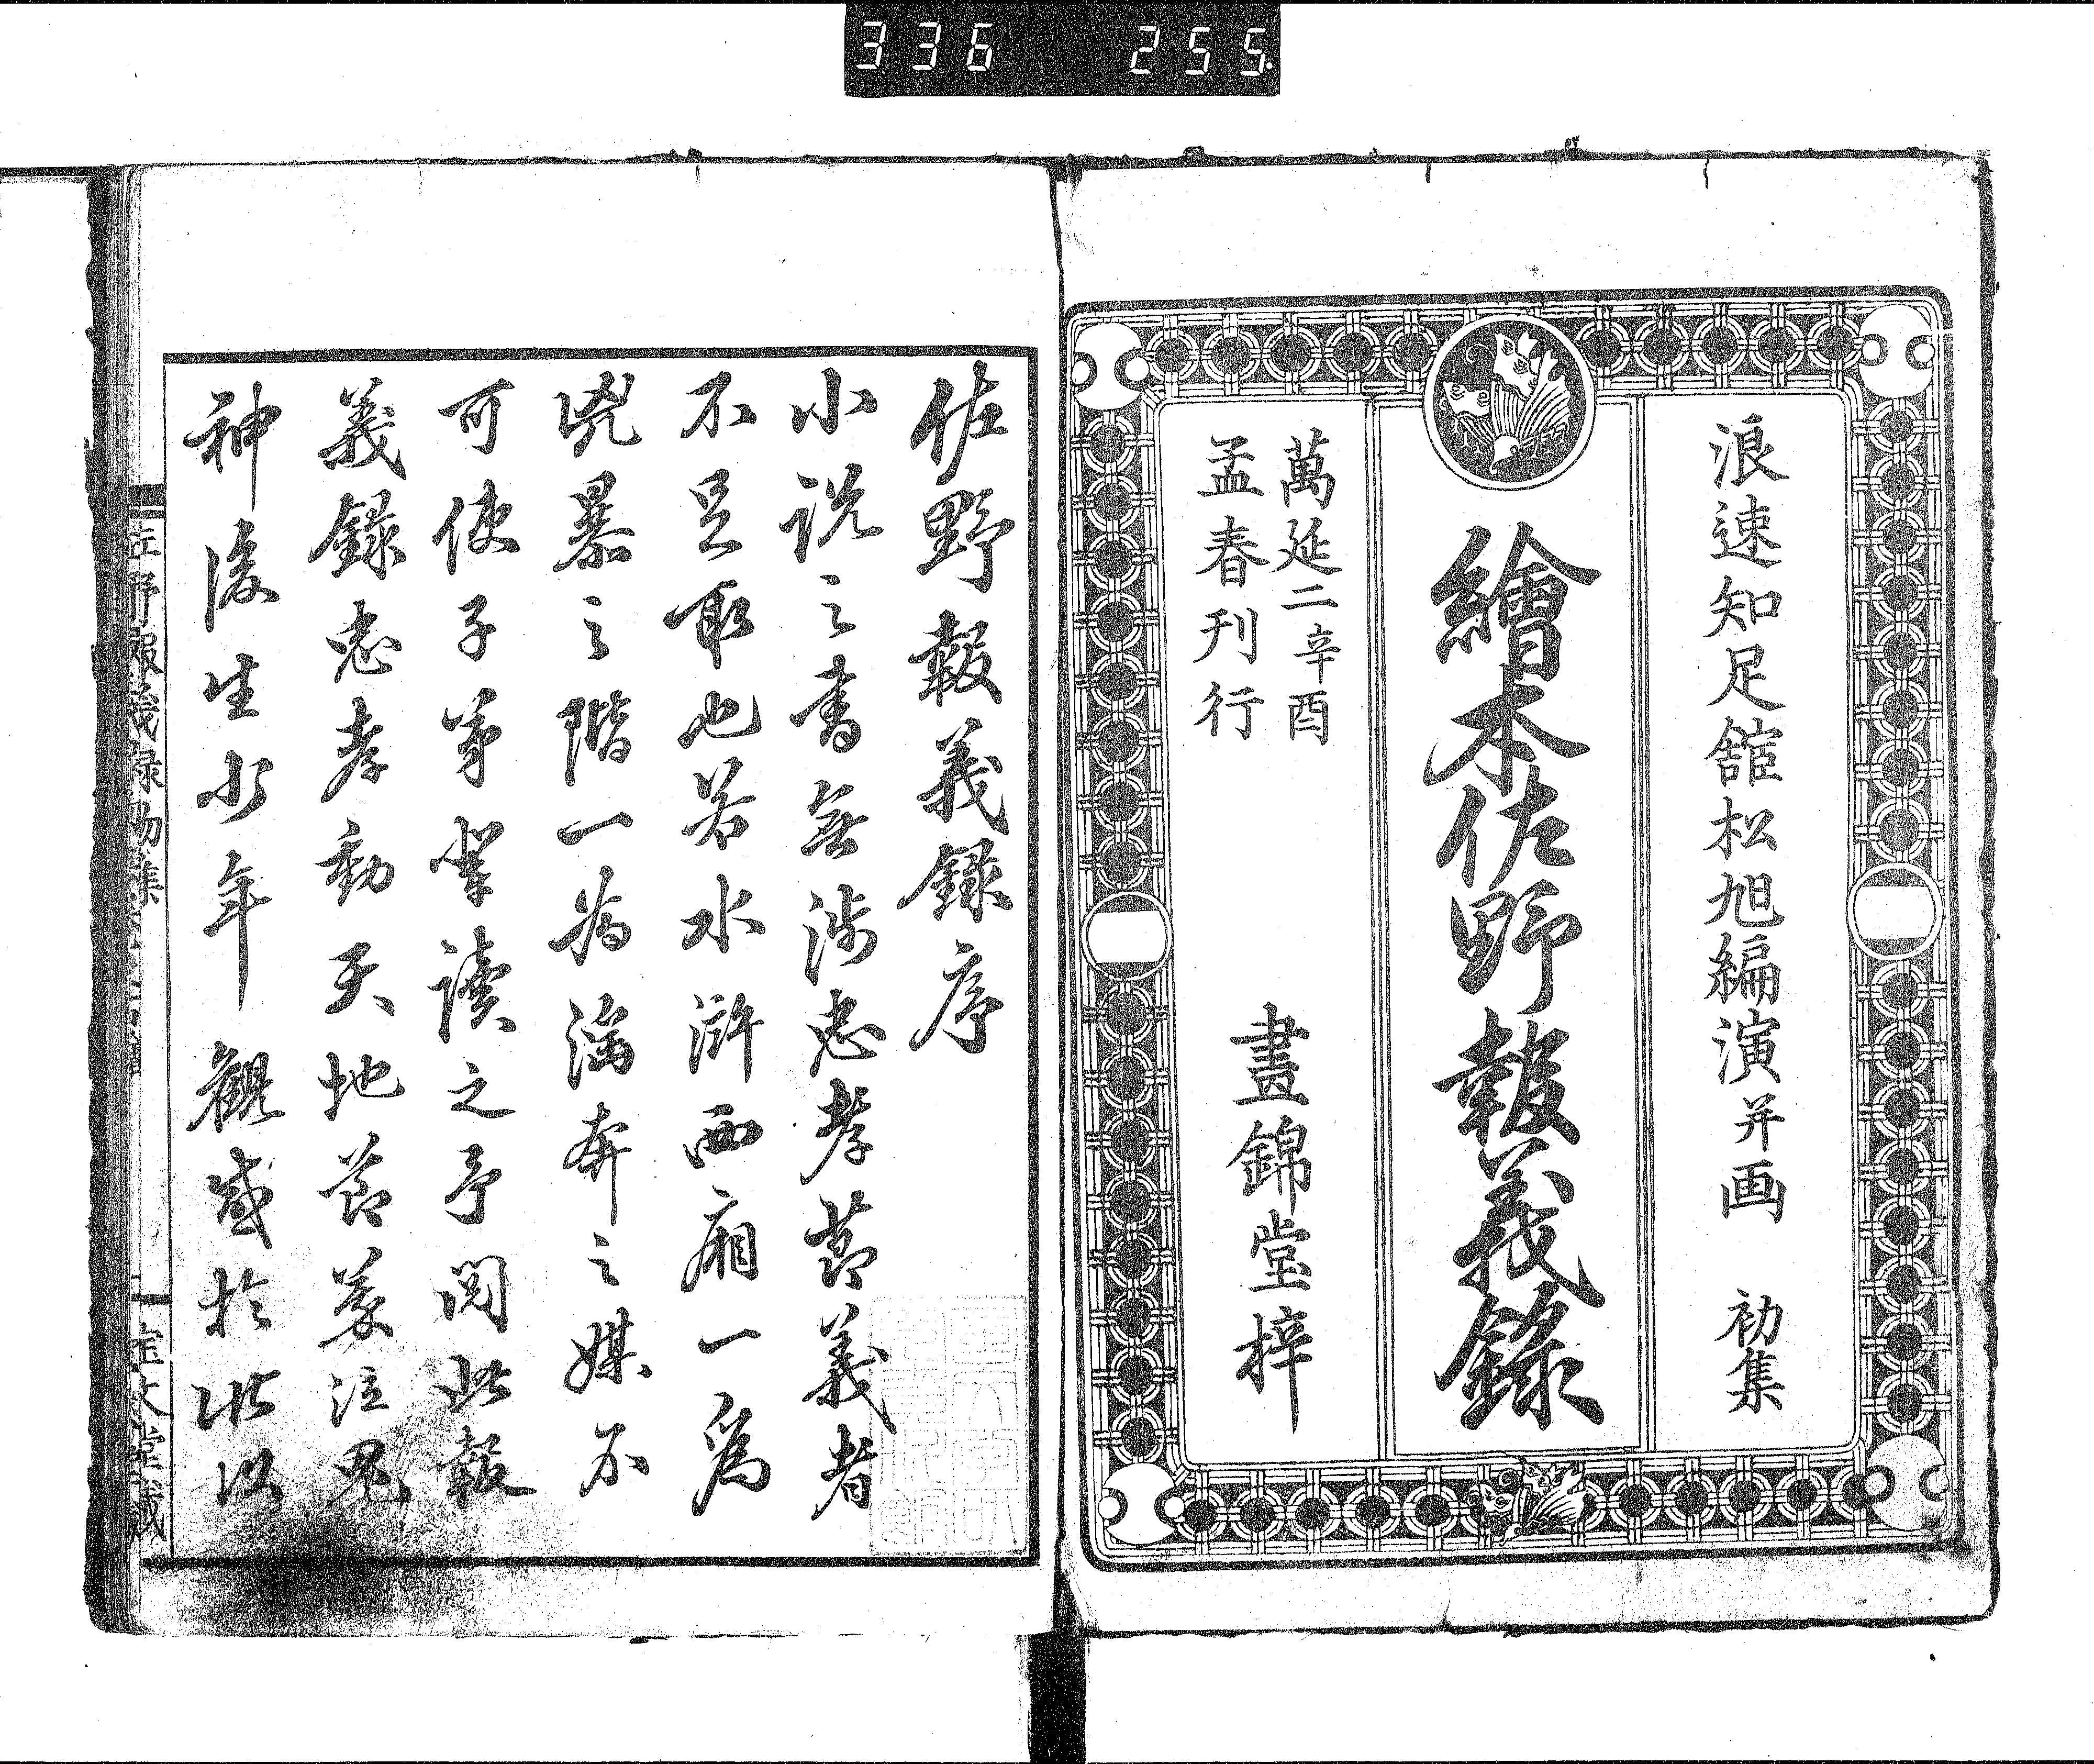 336 255
浪速知足舘松旭編演并画 初集
繪本佐野報義録
萬延二辛酉
孟春刊行
晝錦堂梓
佐野報義録序
小説之書無渉忠孝節義者
不足取也若水滸西廂一爲
兇暴之階一為淫奔之媒不
可使子弟輩讀之予閲此報
義録忠孝動天地節義泣鬼
神後生少年観感於此以
佐野報義録初集